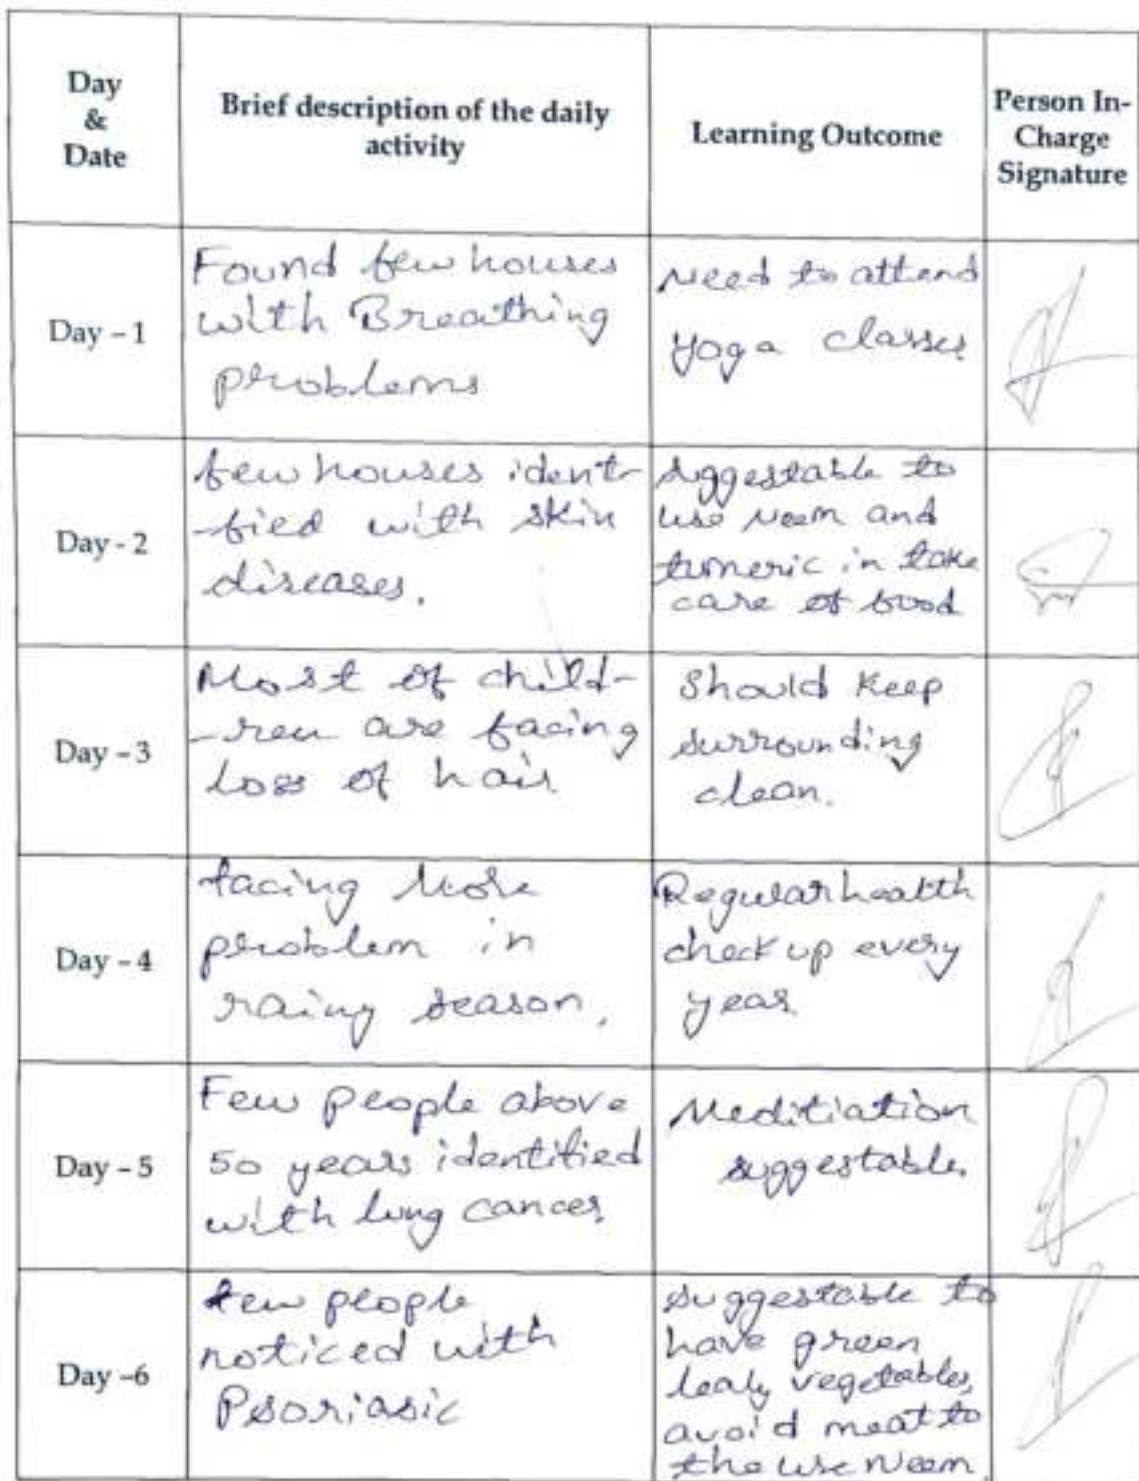 Day
&
Date
Brief description of the daily
activity
Learning Outcome
Person In-
Charge
Signature
Day – 1
Found few houses
with Breathing
problems
Need to attend
yoga classes
Day - 2
few houses identi-
-fied with skin
diseases.
suggestable to
use Neem and
tumeric in take
care of food
Day – 3
Most of child-
-ren are facing
loss of hair
Should keep
surrounding
clean.
Day – 4
facing more
problem in
rainy season.
Regular health
check up every
year
Day – 5
Few people above
50 years identified
with lung cancer
Meditiation
suggestable.
Day –6
few people
noticed with
Psoriasic
suggestable to
have green
leafy vegetables,
avoid meat to
the use Neem